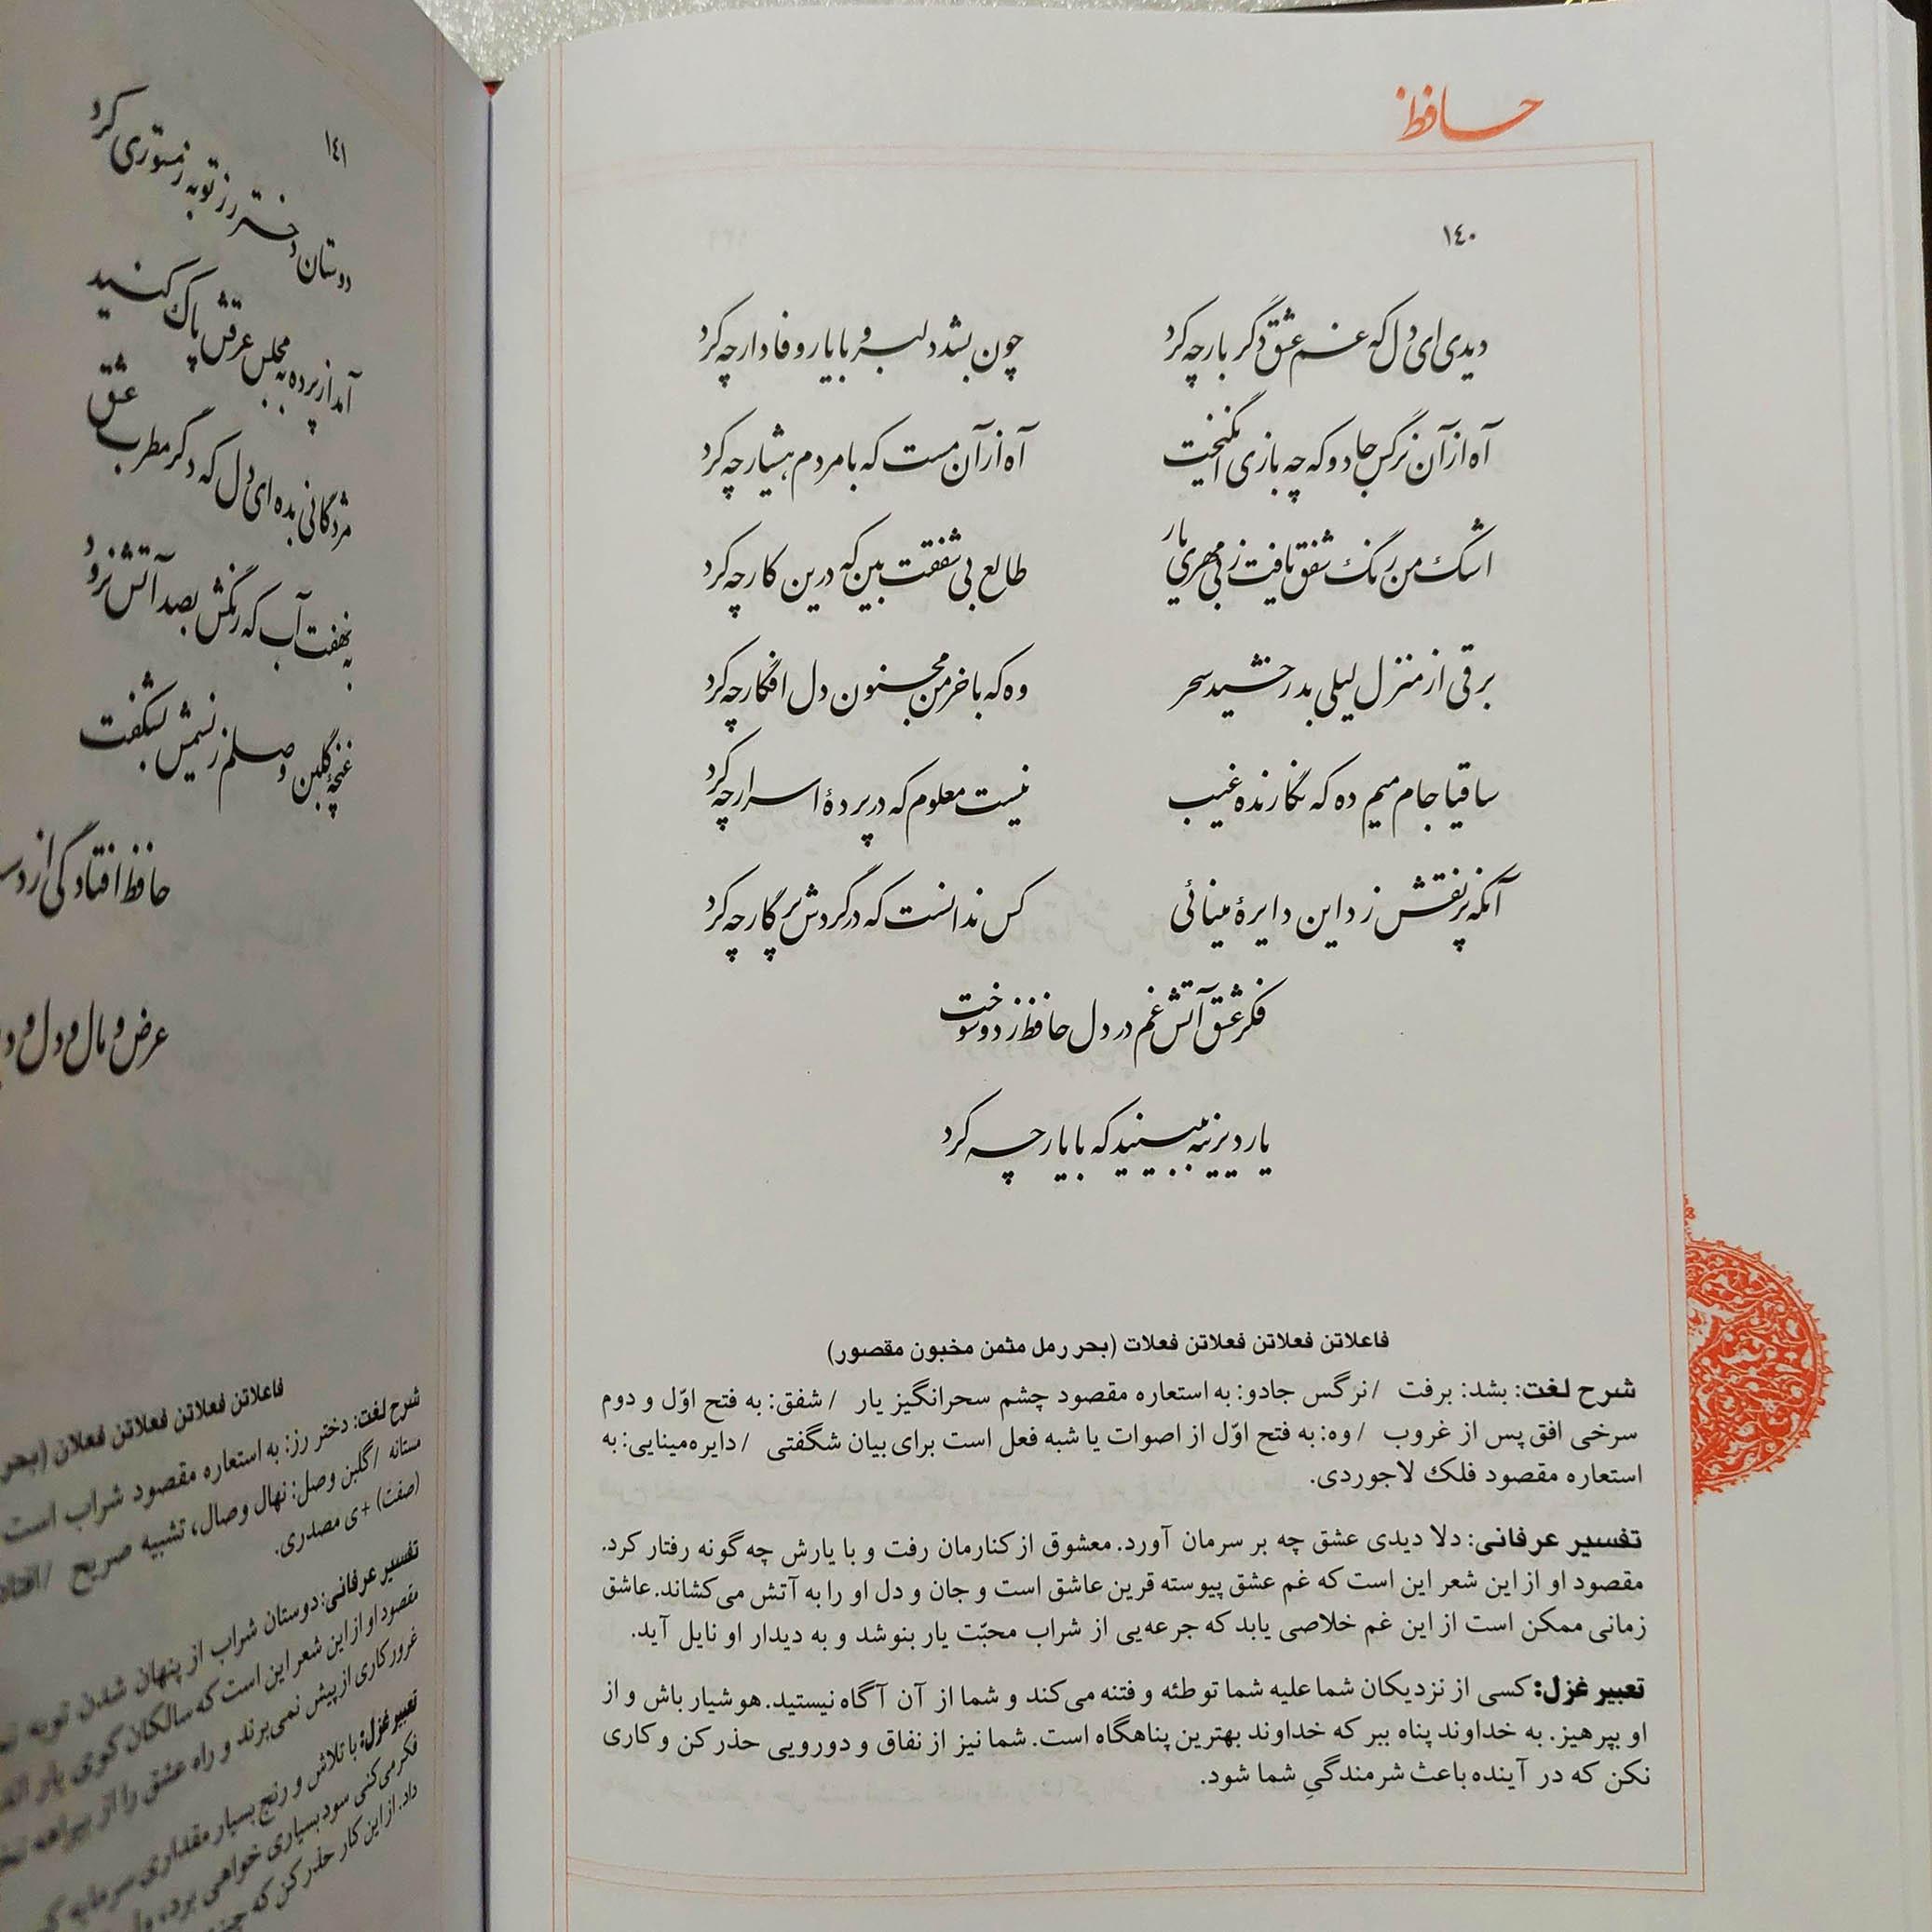 حافظ
۱۴۰
دیدی ای دل که غم عشق دگر بار چه کرد
چون بشد دلبر و با یار وفادار چه کرد
آه از آن نرگس جادو که چه بازی انگیخت
آه از آن مست که با مردم هشیار چه کرد
اشک من رنگ شفق یافت ز بی مهری یار
طالع بی شفقت بین که درین کار چه کرد
برقی از منزل لیلی بدرخشید سحر
وه که با خرمن مجنون دل افگار چه کرد
ساقیا جام میم ده که نگارنده غیب
نیست معلوم که در پردهٔ اسرار چه کرد
آنکه پر نقش زد این دایرهٔ مینائی
کس ندانست که در گردش پرگار چه کرد
فکر عشق آتش غم در دل حافظ زد و سوخت
یار دیرینه ببینید که با یار چه کرد
فاعلاتن فعلاتن فعلاتن فعلات (بحر رمل مثمن مخبون مقصور)
شرح لغت: بشد: برفت /نرگس جادو: به استعاره مقصود چشم سحرانگیز یار /شفق: به فتح اوّل و دوم
سرخی افق پس از غروب /وه: به فتح اوّل از اصوات یا شبه فعل است برای بیان شگفتی /دایره‌مینایی: به
استعاره مقصود فلک لاجوردی.
تفسیر عرفانی: دلا دیدی عشق چه بر سرمان آورد. معشوق از کنارمان رفت و با یارش چه گونه رفتار کرد.
مقصود او از این شعر این است که غم عشق پیوسته قرین عاشق است و جان و دل او را به آتش می‌کشاند. عاشق
زمانی ممکن است از این غم خلاصی یابد که جرعه‌یی از شراب محبّت یار بنوشد و به دیدار او نایل آید.
تعبیر غزل: کسی از نزدیکان شما علیه شما توطئه و فتنه می‌کند و شما از آن آگاه نیستید. هوشیار باش و از
او بپرهیز. به خداوند پناه ببر که خداوند بهترین پناهگاه است. شما نیز از نفاق و دورویی حذر کن و کاری
نکن که در آینده باعث شرمندگیِ شما شود.
۱۴۱
دوستان دختر رز توبه ز مستوری کرد
آمد از پرده به مجلس عرقش پاک کنید
مژدگانی بده ای دل که دگر مطرب عشق
نه به هفت آب که رنگش بصد آتش نرود
غنچهٔ گلبن وصلم ز نسیمش بشکفت
حافظ افتادگی از
عرض و مال و دل و
فاعلاتن فعلاتن فعلاتن فعلان (بحر
شرح لغت: دختر رز: به استعاره مقصود شراب است
مستانه /گلبن وصل: نهال وصال، تشبیه صریح
(صفت) +ی مصدری.
تفسیر عرفانی: دوستان شراب از پنهان شدن توبه
مقصود او از این شعر این است که سالکان کوی یار
غرور کاری از پیش نمی‌برند و راه عشق را از بیراهه
تعبیر غزل: با تلاش و رنج بسیار مقداری سرمایه
فکر می‌کنی سود بسیاری خواهی برد،
داد. از این کار حذر کن که